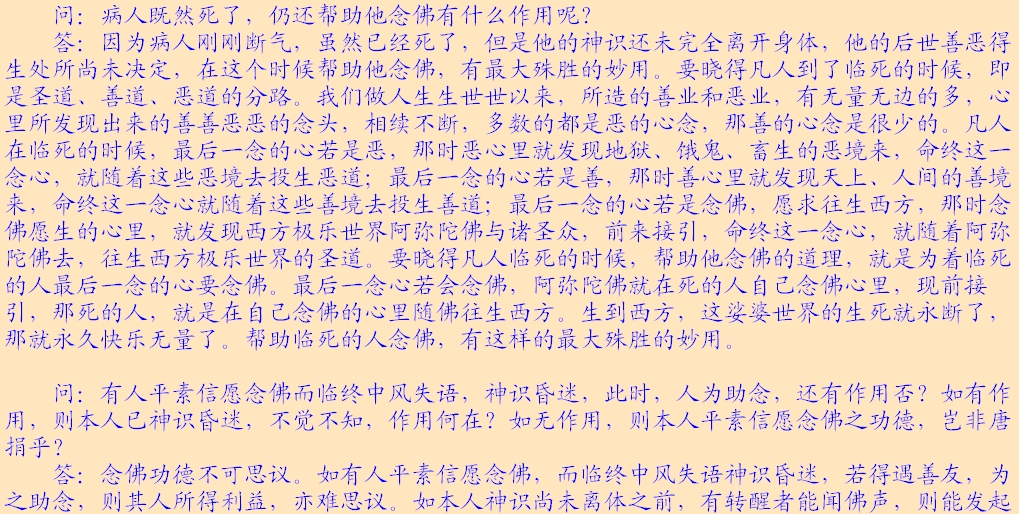 问：病人既然死了，仍还帮助他念佛有什么作用呢？
答：因为病人刚刚断气，虽然已经死了，但是他的神识还未完全离开身体，他的后世善恶得
生处所尚未决定，在这个时候帮助他念佛，有最大殊胜的妙用。要晓得凡人到了临死的时候，即
是圣道、善道、恶道的分路。我们做人生生世世以来，所造的善业和恶业，有无量无边的多，心
里所发现出来的善善恶恶的念头，相续不断，多数的都是恶的心念，那善的心念是很少的。凡人
在临死的时候，最后一念的心若是恶，那时恶心里就发现地狱、饿鬼、畜生的恶境来，命终这一
念心，就随着这些恶境去投生恶道；最后一念的心若是善，那时善心里就发现天上、人间的善境
来，命终这一念心就随着这些善境去投生善道；最后一念的心若是念佛，愿求往生西方，那时念
佛愿生的心里，就发现西方极乐世界阿弥陀佛与诸圣众，前来接引，命终这一念心，就随着阿弥
陀佛去，往生西方极乐世界的圣道。要晓得凡人临死的时候，帮助他念佛的道理，就是为着临死
的人最后一念的心要念佛。最后一念心若会念佛，阿弥陀佛就在死的人自己念佛心里，现前接
引，那死的人，就是在自己念佛的心里随佛往生西方。生到西方，这娑婆世界的生死就永断了，
那就永久快乐无量了。帮助临死的人念佛，有这样的最大殊胜的妙用。
问：有人平素信愿念佛而临终中风失语，神识昏迷，此时，人为助念，还有作用否？如有作
用，则本人已神识昏迷，不觉不知，作用何在？如无作用，则本人平素信愿念佛之功德，岂非唐
捐乎？
答：念佛功德不可思议。如有人平素信愿念佛，而临终中风失语神识昏迷，若得遇善友，为
之助念，则其人所得利益，亦难思议。如本人神识尚未离体之前，有转醒者能闻佛声，则能发起